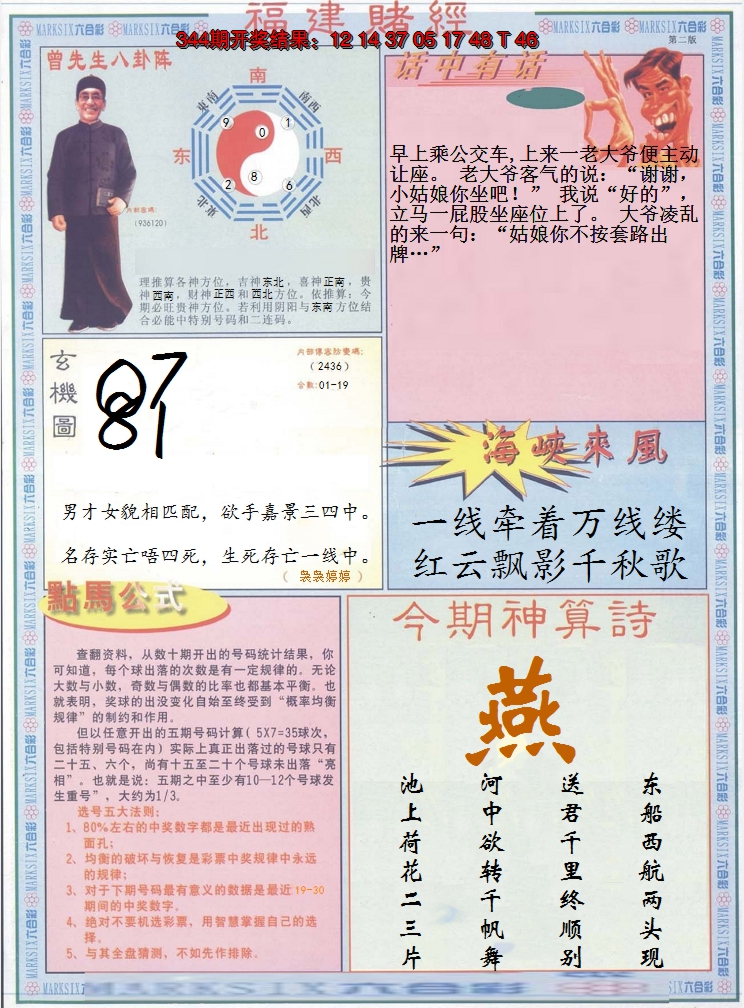 福建賭經
344期开奖结果：12 14 37 05 17 48 T 46
MARKSIX六合彩
第二版
曾先生八卦阵
南
东南
南西
9
0
1
东
西
2
8
6
东北
西北
北
內部密碼：
（936120）
理推算各神方位，吉神东北，喜神正南，贵
神西南，财神正西和西北方位。依推算：今
期必旺贵神方位。若利用阴阳与东南方位结
合必能中特别号码和二连码。
话中有话
早上乘公交车,上来一老大爷便主动
让座。 老大爷客气的说：“谢谢，
小姑娘你坐吧！” 我说“好的”，
立马一屁股坐座位上了。 大爷凌乱
的来一句：“姑娘你不按套路出
牌…”
玄機圖
07
81
（2436）
合数:01-19
男才女貌相匹配，欲手嘉景三四中。
名存实亡唔四死，生死存亡一线中。
（ 袅袅婷婷 ）
海峽來風
一线牵着万线缕
红云飘影千秋歌
點馬公式
查翻资料，从数十期开出的号码统计结果，你
可知道，每个球出落的次数是有一定规律的。无论
大数与小数，奇数与偶数的比率也都基本平衡。也
就表明，奖球的出没变化自始至终受到“概率均衡
规律”的制约和作用。
但以任意开出的五期号码计算( 5X7=35球次，
包括特别号码在内) 实际上真正出落过的号球只有
二十五、六个，尚有十五至二十个号球未出落“亮
相”。也就是说：五期之中至少有10—12个号球发
生重号”，大约为1/3。
选号五大法则：
1、80%左右的中奖数字都是最近出现过的熟
面孔；
2、均衡的破坏与恢复是彩票中奖规律中永远
的规律；
3、对于下期号码最有意义的数据是最近19-30
期间的中奖数字。
4、绝对不要机选彩票，用智慧掌握自己的选
择。
5、与其全盘猜测，不如先作排除。
今期神算詩
燕
东船西航两头现
送君千里终顺别
河中欲转千帆舞
池上荷花二三片